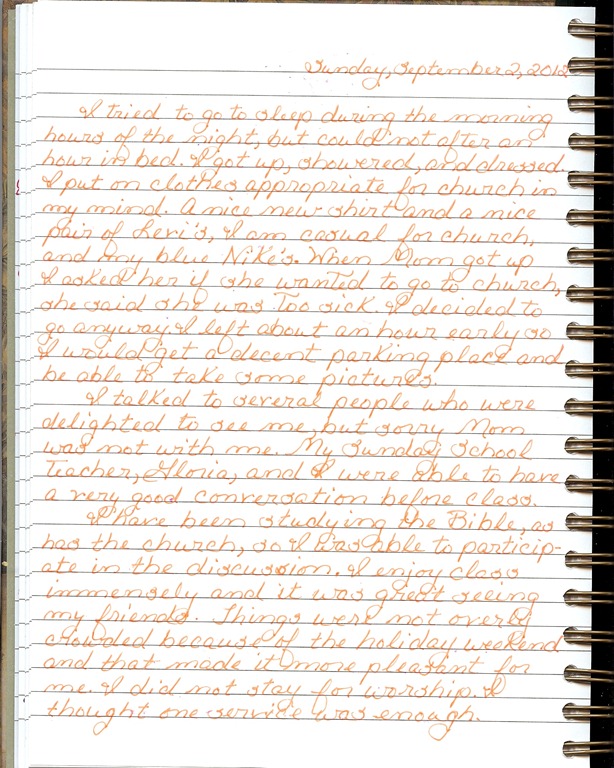 Sunday, September 2, 2012
I tried to go to sleep during the morning
hours of the night, but could not after an
hour in bed. I got up, showered, and dressed.
I put on clothes appropriate for church in
my mind. A nice new shirt and a nice
pair of Levi's, I am casual for church,
and my blue Nike's. When Mom got up
I asked her if she wanted to go to church,
she said she was Too sick. I decided to
go anyway. I left about an hour early so
I would get a decent parking place and
be able to take some pictures.
I talked to several people who were
delighted to see me, but sorry Mom
was not with me. My Sunday School
Teacher, Gloria, and I were able to have
a very good conversation before class.
I have been studying the Bible, as
has the church, so I was able to particip-
ate in the discussion. I enjoy class
immensely and it was great seeing
my friends. Things were not overly
crowded because of the holiday weekend
and that made it more pleasant for
me. I did not stay for worship. I
thought one service was enough.